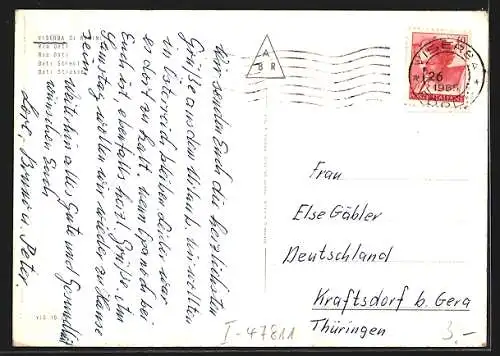 VISERBA DI RIMINI
Via Dati
Rue Dati
Dati Street
Dati Strasse
Wir senden Euch die herzlichsten
Grüße aus dem Urlaub. Wir wollten
in Österreich bleiben leider war
es dort zu kalt. Wenn Opa noch bei
Euch ist, ebenfalls herzl. Grüße. Am
Samstag wollen wir wieder zu Hause
sein.
Weiterhin alles Gute und Gesundheit
wünschen Euch
Lore, Bruno u. Peter.
A
B R
VISERBA
26
1965
Frau
Else Gäbler
Deutschland
Kraftsdorf b. Gera
Thüringen
I-47811
3,-